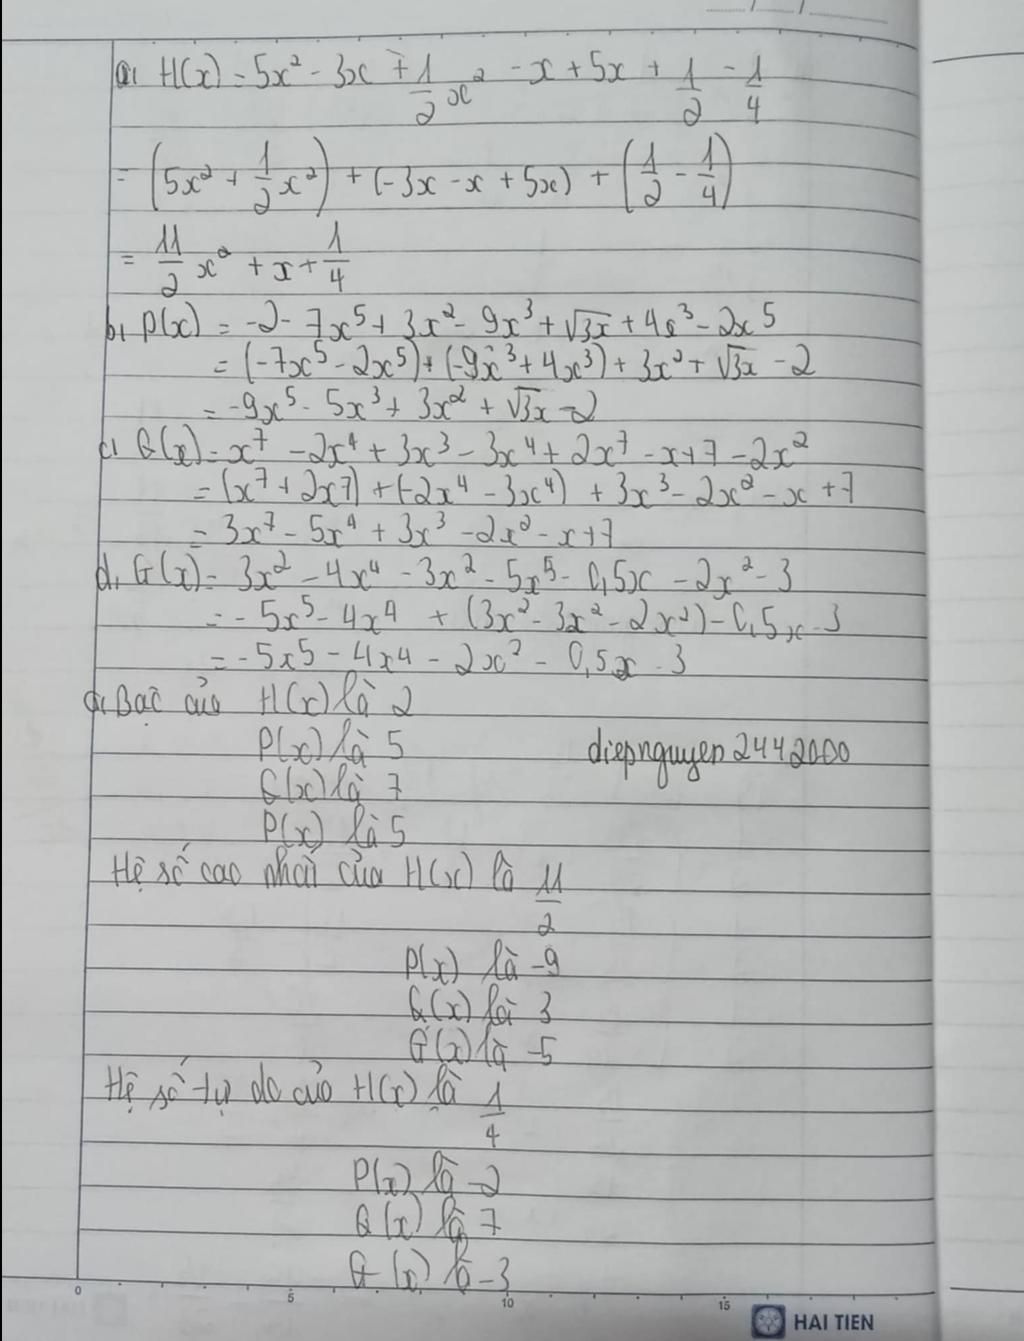 a, H(x) = 5x² - 3x + 1/2 x² - x + 5x + 1/2 - 1/4
= (5x² + 1/2 x²) + (-3x - x + 5x) + (1/2 - 1/4)
= 11/2 x² + x + 1/4
b, P(x) = -2 - 7x⁵ + 3x² - 9x³ + √3x + 4x³ - 2x⁵
= (-7x⁵ - 2x⁵) + (-9x³ + 4x³) + 3x² + √3x - 2
= -9x⁵ - 5x³ + 3x² + √3x - 2
c, Q(x) = x⁷ - 2x⁴ + 3x³ - 3x⁴ + 2x⁷ - x + 7 - 2x²
= (x⁷ + 2x⁷) + (-2x⁴ - 3x⁴) + 3x³ - 2x² - x + 7
= 3x⁷ - 5x⁴ + 3x³ - 2x² - x + 7
d, G(x) = 3x² - 4x⁴ - 3x² - 5x⁵ - 0,5x - 2x² - 3
= - 5x⁵ - 4x⁴ + (3x² - 3x² - 2x²) - 0,5x - 3
= - 5x⁵ - 4x⁴ - 2x² - 0,5x - 3
Bậc của H(x) là 2
P(x) là 5 diepnguyen2442000
Q(x) là 7
P(x) là 5
Hệ số cao nhất của H(x) là 11/2
P(x) là -9
Q(x) là 3
G(x) là -5
Hệ số tự do của H(x) là 1/4
P(x) là -2
Q(x) là 7
G(x) là -3
0 5 10 15
HAI TIEN